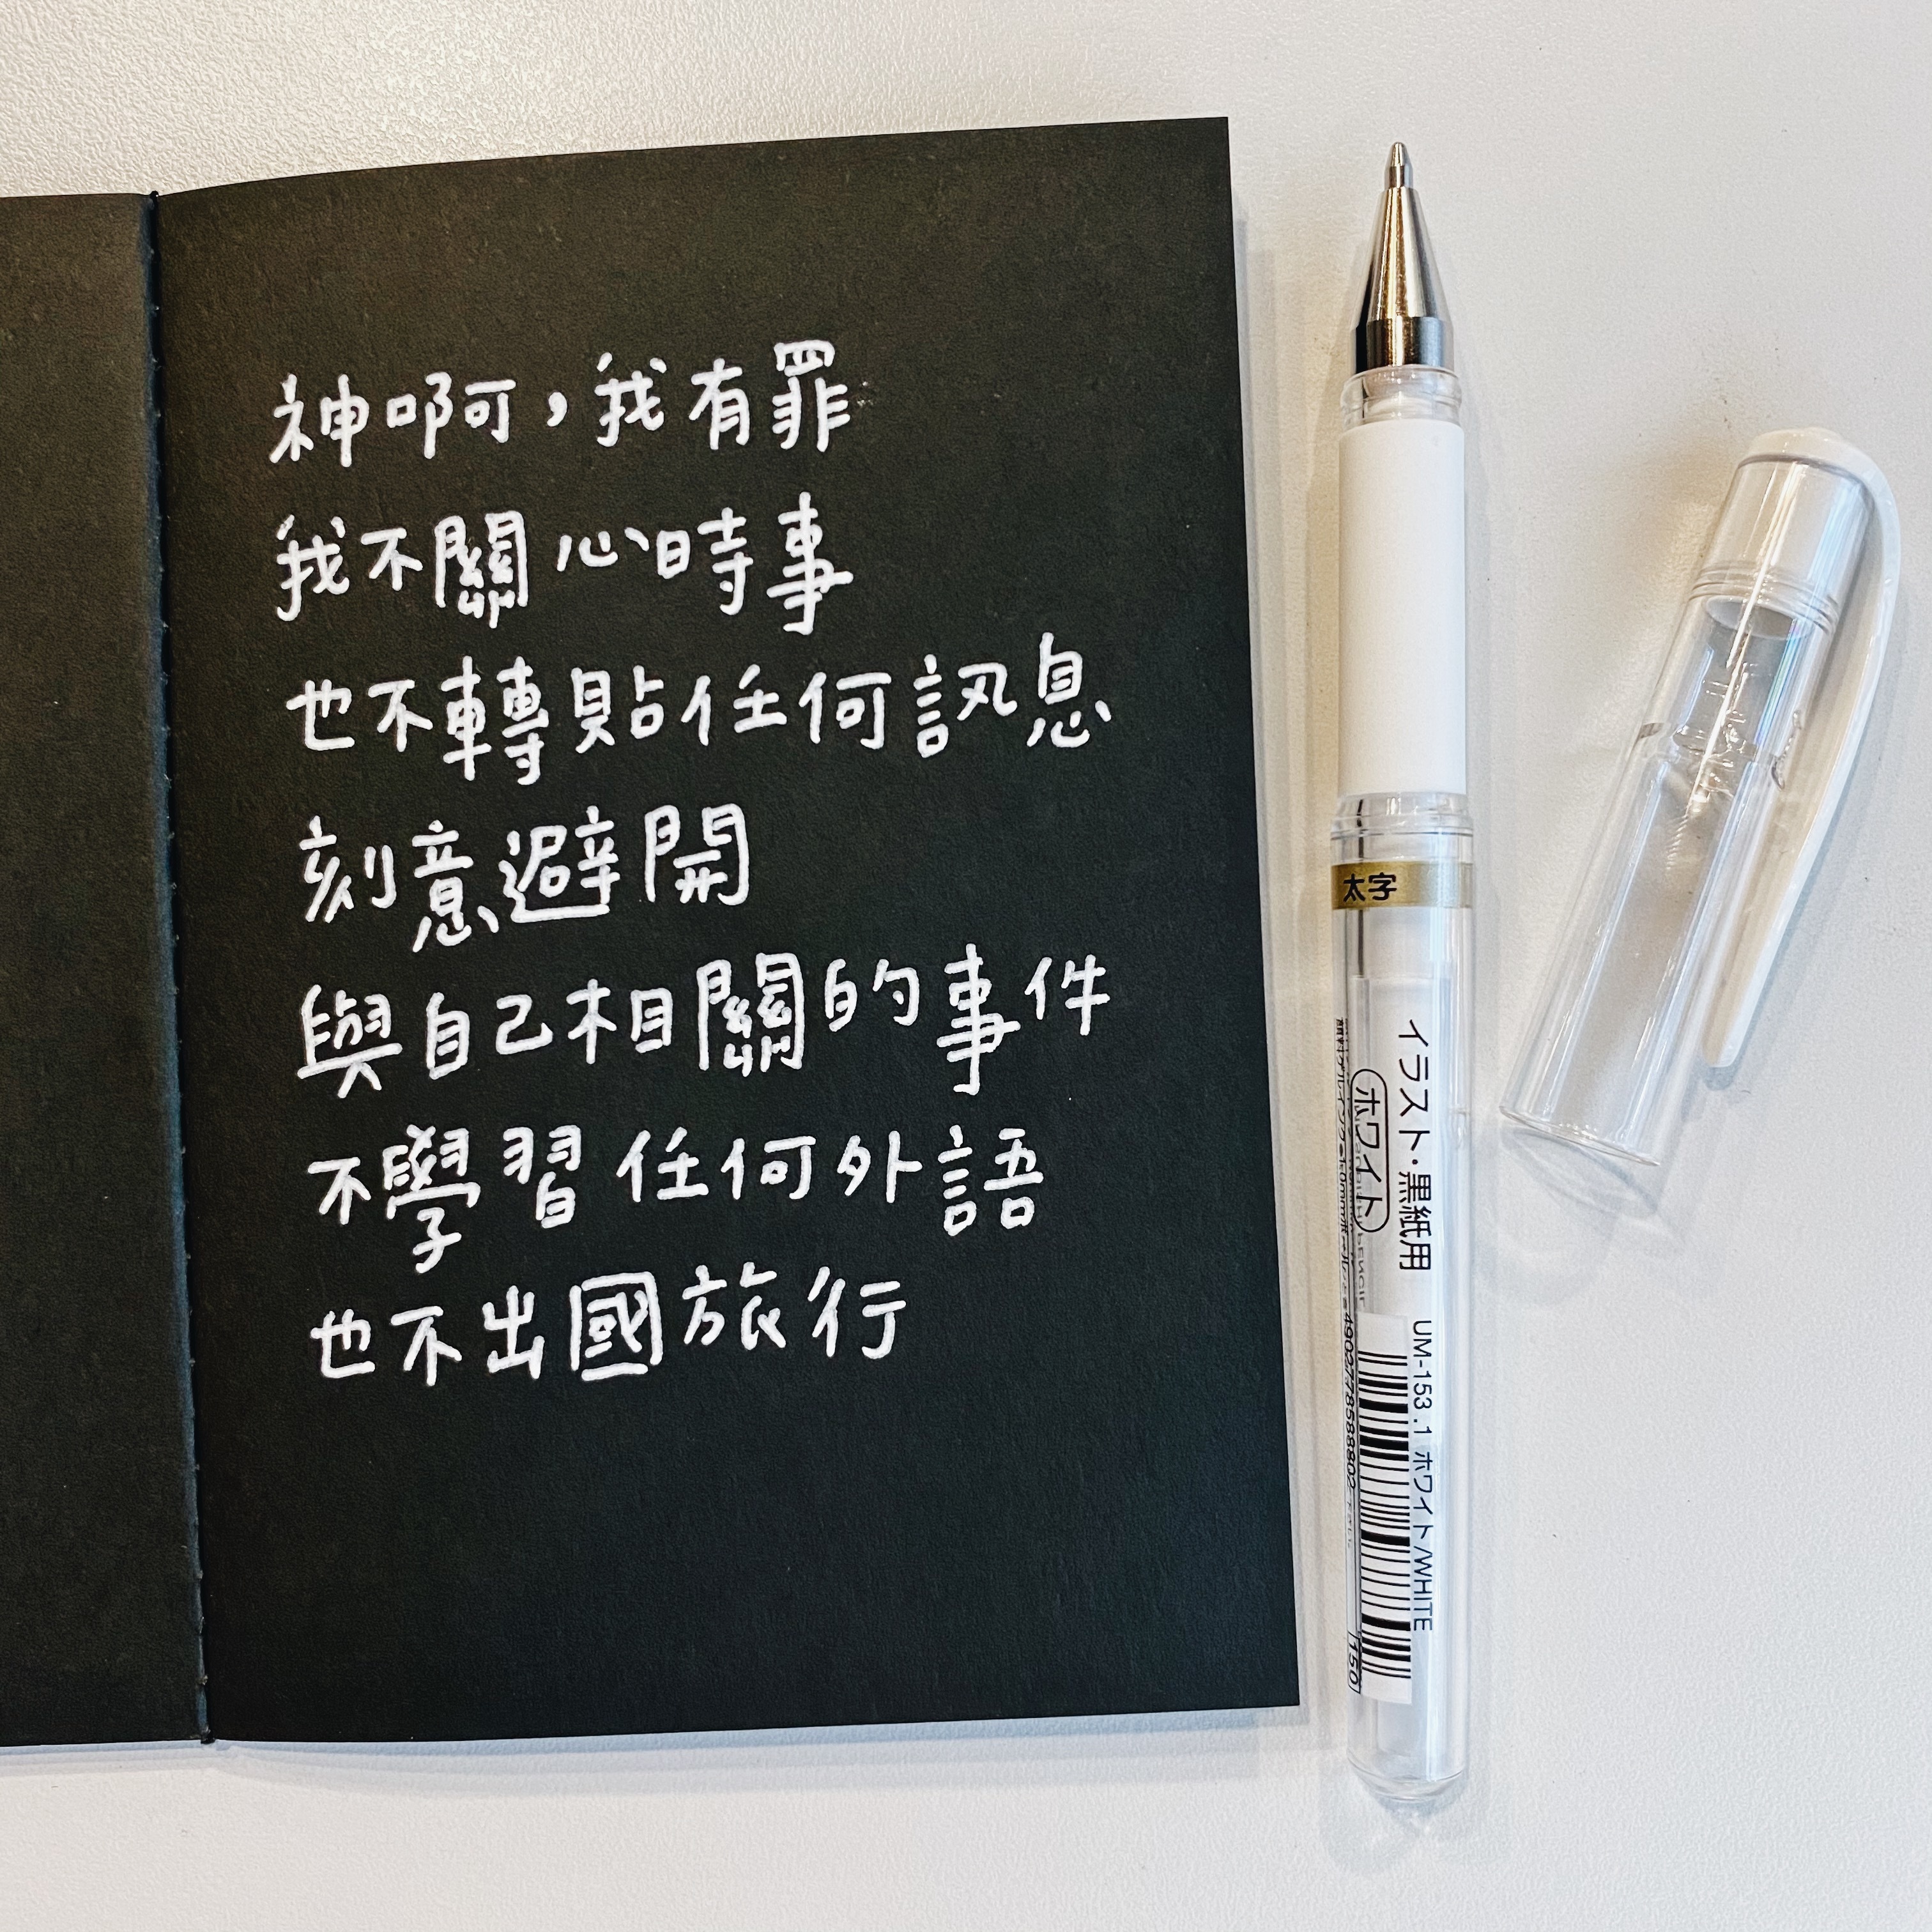 神啊，我有罪
我不關心時事
也不轉貼任何訊息
刻意避開
與自己相關的事件
不學習任何外語
也不出國旅行
太字
イラスト・黒紙用
ホワイト
UM-153 .1 ホワイト/WHITE
150